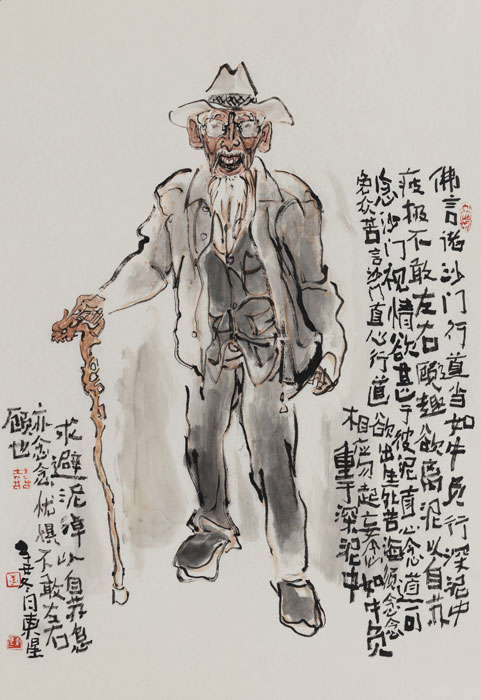 佛言诸沙门行道当如牛负行深泥中
疲极不敢左右顾趣欲离泥以自苏
念沙门视情欲甚于彼泥直心念道可
免众苦言沙门直心行道欲出生死苦海念念
相应勿起妄念如牛负
重于深泥中
求避泥淖以自苏息
亦念念忧惧不敢左右
顾也
冬月東星